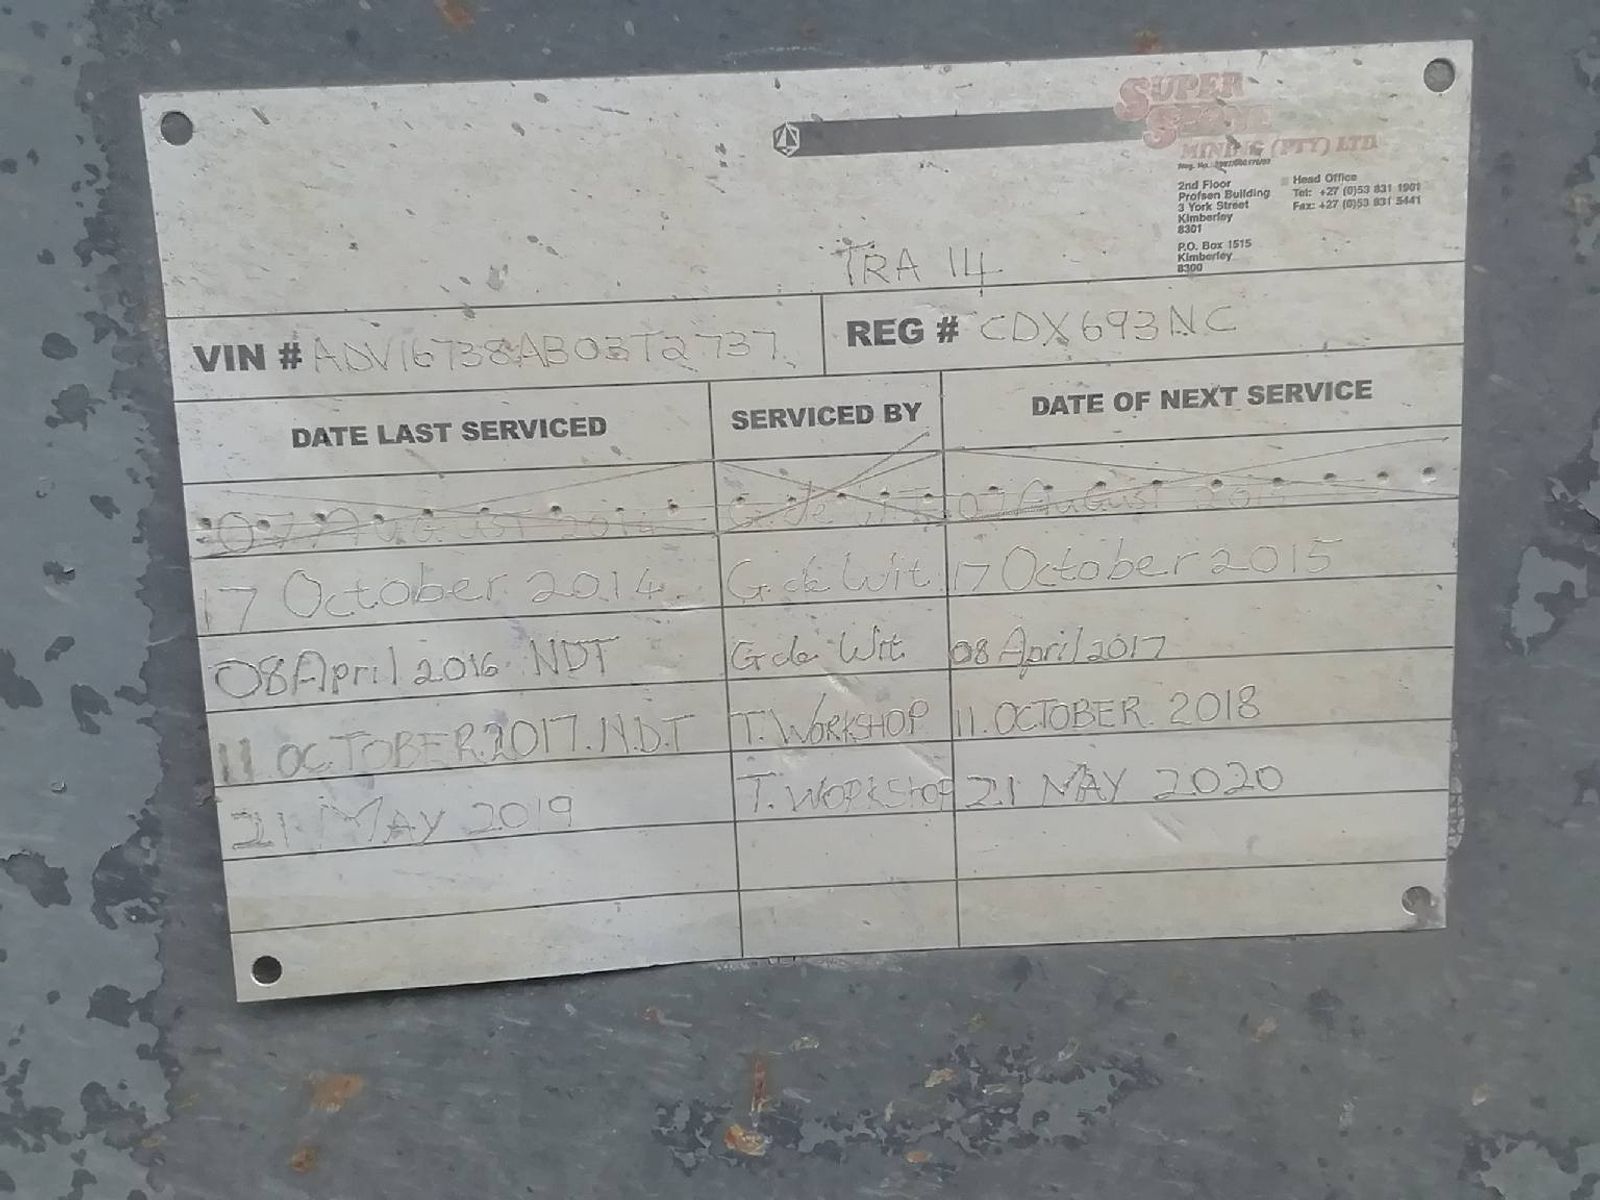 SUPER
STONE
MINING (PTY) LTD
2nd Floor
Profsen Building
3 York Street
Kimberley
8301
P.O. Box 1515
Kimberley
8300
Head Office
Tel: +27 (0)53 831 1901
Fax: +27 (0)53 831 5441
TRA 14
VIN # ADV16738AB03T2737
REG # CDX693NC
DATE LAST SERVICED SERVICED BY DATE OF NEXT SERVICE
07 August 2014 G. de Wit 07 August 2015
17 October 2014. G. de Wit 17 October 2015
08 April 2016 NDT G de Wit 08 April 2017
11. OCTOBER.2017. N.D.T T. WORKSHOP 11. OCTOBER. 2018
21 MAY 2019 T. WORKSHOP 21 MAY 2020